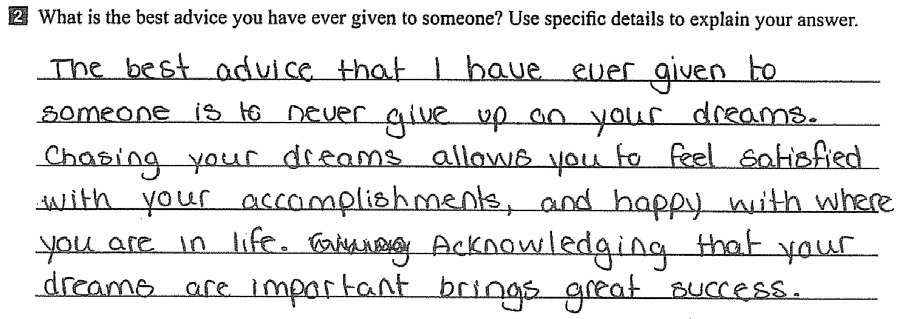 2 What is the best advice you have ever given to someone? Use specific details to explain your answer.
The best advice that I have ever given to
someone is to never give up on your dreams.
Chasing your dreams allows you to feel satisfied
with your accomplishments, and happy with where
you are in life. Acknowledging that your
dreams are important brings great success.